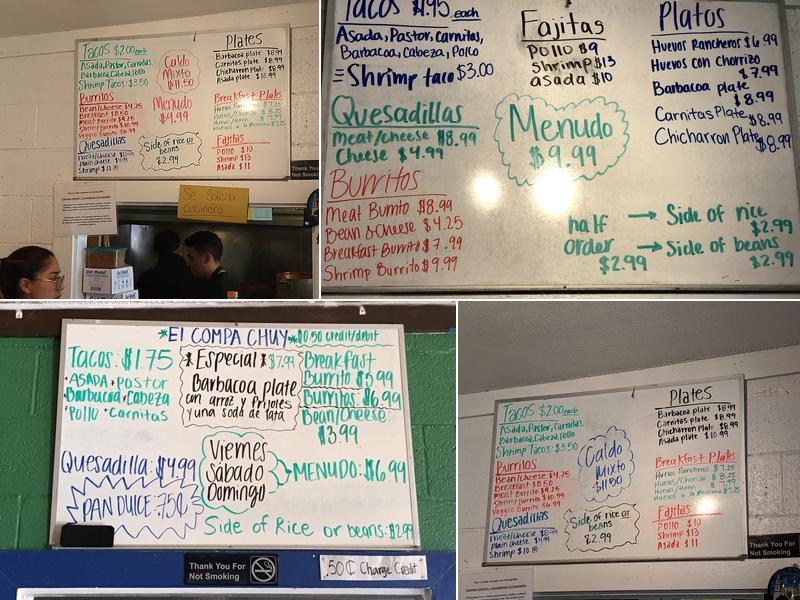 Tacos $2.00 each
Asada, Pastor, Carnitas,
Barbacoa, Cabeza, Pollo
Shrimp Tacos: $3.50
Burritos
Bean/Cheese $4.25
Breakfast $8.50
Meat Burrito $9.25
Shrimp Burrito $10.99
Veggie Burrito
Quesadillas
Meat/cheese
plain cheese $4.99
Shrimp
Caldo
Mixto
$11.50
Menudo
$9.99
Side of rice or
beans
$2.99
Plates
Barbacoa plate $8.99
Carnitas plate $8.99
Chicharron plate $8.99
Asada plate $10.99
Breakfast Plates
Huevos Rancheros $7.25
Huevos/Chorizo $8.25
Huevos/Ham $7.99
Huevos a la Mexicana $7.25
Fajitas
Pollo $10
Shrimp $13
Asada $11
Thank You For
Not Smoking
Se Solicita
cocinero
Tacos $1.95 each
Asada, Pastor, Carnitas,
Barbacoa, Cabeza, Pollo
Shrimp taco $3.00
Quesadillas
Meat/cheese $8.99
Cheese $4.99
Burritos
Meat Burrito $8.99
Bean & Cheese $4.25
Breakfast Burrito $7.99
Shrimp Burrito $9.99
Fajitas
Pollo $9
Shrimp $13
asada $10
Menudo
$9.99
half
order
$2.99
Side of rice
$2.99
Side of beans
$2.99
Platos
Huevos Rancheros $6.99
Huevos con Chorizo
$7.99
Barbacoa plate
$8.99
Carnitas Plate $8.99
Chicharron Plate $8.99
*El COMPA CHUY* $0.50 credit/debit
Tacos: $1.75
• ASADA • Pastor
• Barbacoa • Cabeza
• Pollo • Carnitas
Quesadilla: $4.99
PAN DULCE: 75¢
*Especial* $7.99
Barbacoa plate
con arroz y frijoles
y una soda de lata
Viernes
Sábado
Domingo
Breakfast
Burrito $5.99
Burritos: $6.99
Bean/Cheese:
$3.99
MENUDO: $6.99
Side of Rice or beans: $2.99
Thank You For
Not Smoking
.50¢ Charge Credit
Tacos $2.00 each
Asada, Pastor, Carnitas,
Barbacoa, Cabeza, Pollo
Shrimp Tacos: $3.50
Burritos
Bean/Cheese $4.25
Breakfast $8.50
Meat Burrito $9.25
Shrimp Burrito $10.99
Veggie Burrito
Quesadillas
Meat/cheese
Plain cheese $4.99
Shrimp
Caldo
Mixto
$11.50
Side of rice or
beans
$2.99
Plates
Barbacoa plate $8.99
Carnitas plate $8.99
Chicharron Plate $8.99
Asada plate $10.99
Breakfast Plates
Huevos Rancheros $7.25
Huevos/Chorizo $8.25
Huevos/Ham $7.99
Huevos a la Mexicana $7.25
Fajitas
Pollo $10
Shrimp $13
Asada $11
Thank You For
Not Smoking